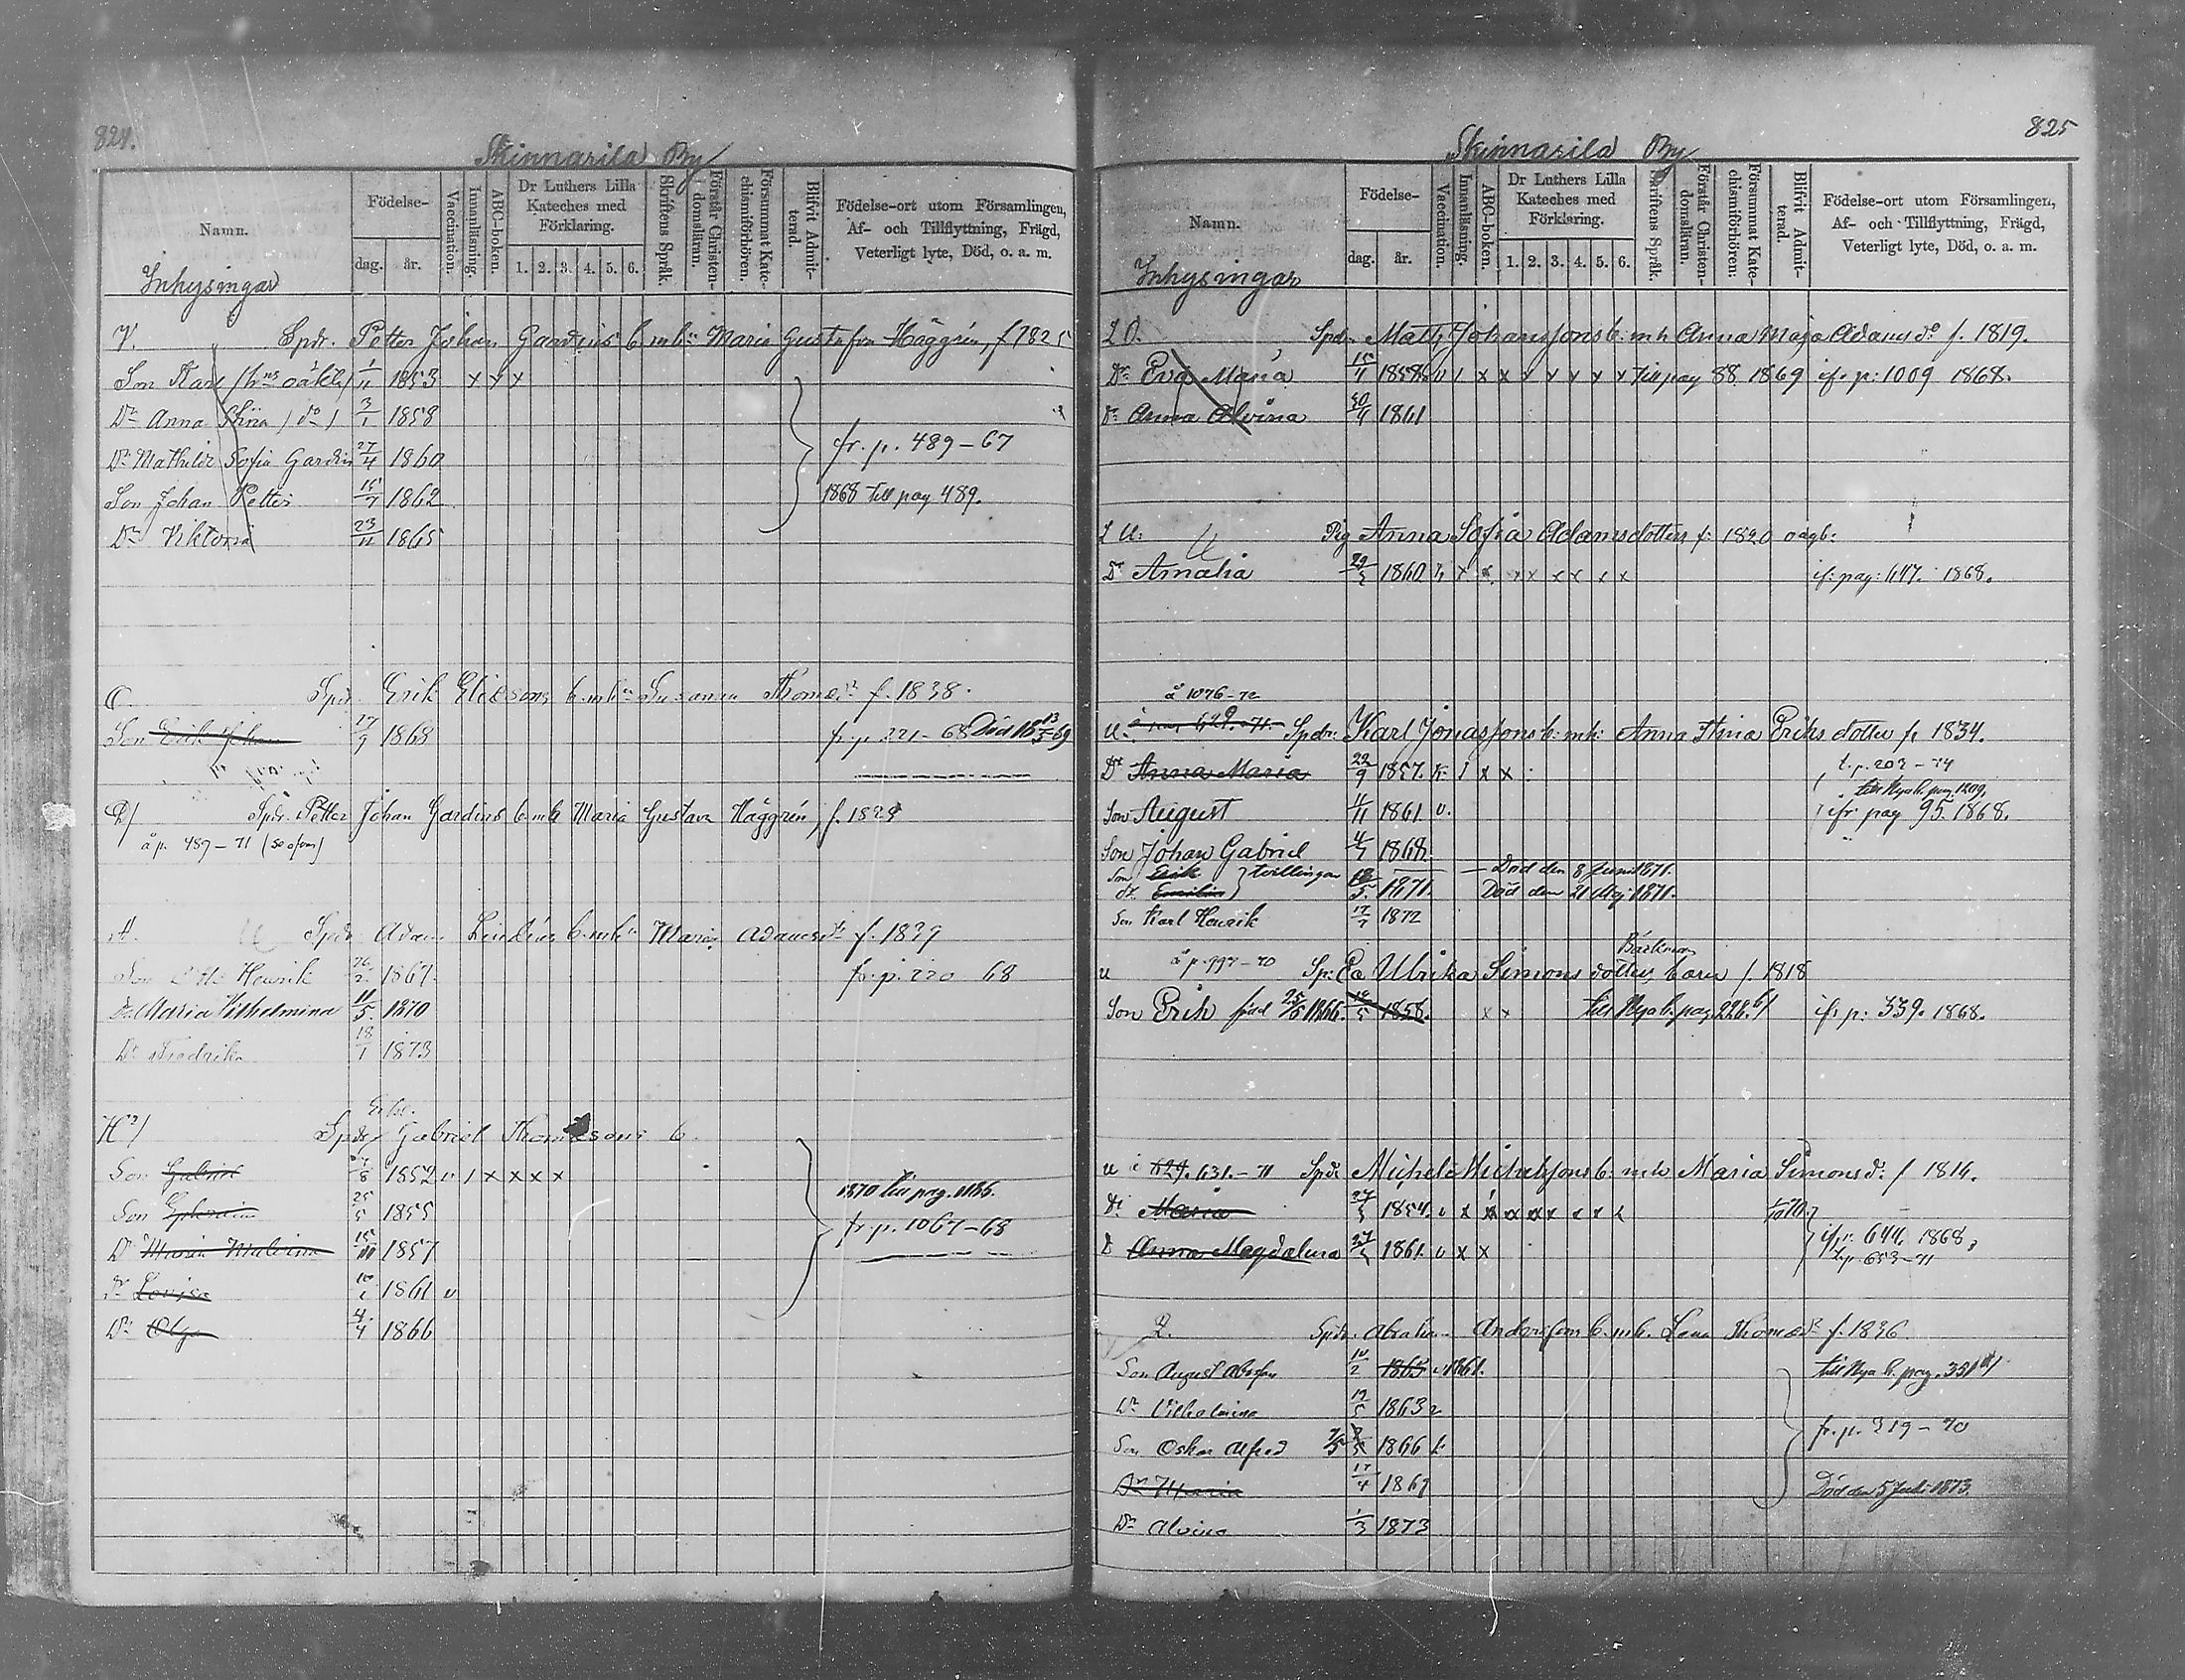 824.
Skinnarila By
Namn.
Födelse-
dag.
år.
Vaccination.
Innanläsning.
ABC-boken.
Dr Luthers Lilla Kateches med Förklaring.
1. 2. 3. 4. 5. 6.
Skriftens Språk.
Förstår Christen-domsläran.
Försummat Kate-chismiförhören.
Blifvit Admit-terad.
Födelse-ort utom Församlingen,
Af- och Tillflyttning, Frägd,
Veterligt lyte, Död, o. a. m.
Inhysingar
Spdr. Petter Johan Gardins b. mh: Maria Gustafva Häggrén, f 1825
Son Karl 1/11 1853 x x x
Dr Anna Stina / do / 3/1 1858
Dr Mathilda Sofia Gardin 27/4 1860 fr. p. 489-67
Son Johan Petter 1862 1868 till pag 489.
Dr Viktoria 23/11 1865
C. Spdr. Erik b. mh: Susanna Thomædr f. 1838.
Son Erik Johan 17/9 1868 fr. p. 221-68 Död 69
D/ Spdr. Petter Johan Gardins b. mh Maria Gustava Häggrén, f. 182
å p. 489-71
Spdr. Adam Lindéns b. mh: Maria Adamsdr f. 1839
Son Henrik 26/2 1867. fr. p. 220 68
Dr Maria Vilhelmina 11/5 1870
Dr Fredrika 18/1 1873
H2/ Spdr Gabriel Thomæsons b.
Son Gabriel 1852 v / x x x x
Son Ephraim 25/5 1855 1870 till pag. 1186.
Dr Maria Malvina 1857 fr. p. 1067-68
Dr Lovisa 1861 v
Dr Olga 4/4 1866
825
Skinnarila By
Namn.
Födelse-
dag.
år.
Vaccination.
Innanläsning.
ABC-boken.
Dr Luthers Lilla Kateches med Förklaring.
1. 2. 3. 4. 5. 6.
Skriftens Språk.
Förstår Christen-domsläran.
Försummat Kate-chismiförhören.
Blifvit Admit-terad.
Födelse-ort utom Församlingen,
Af- och Tillflyttning, Frägd,
Veterligt lyte, Död, o. a. m.
Inhysingar
Spdr. Math: Johanssons b: mh Anna Maja Adams do f. 1819.
Dr Eva Maria 1858 v / x x x x x x x till pag 88. 1869 if. p: 1009 1868.
Dr Anna Alvina 30/4 1861
Pig Anna Sofia Adamsdotters f: 1820 oägb:
Dr Amalia 1860 x x x x x x x x if: pag: 647. 1868.
å 1076-72
u. 629.-71. Spdr: Karl Jonassons b: mh: Anna Stina Eriks dotter f. 1834.
Dr Anna Maria 22/9 1857. / x x t. p. 203-74
till Nya b. pag. 1209.
Son August 1861 v. ifr pag 95. 1868.
Son Johan Gabriel 4/7 1868
Son Erik } tvillingar — Död den 8 Juni 1871.
dr Emilia 1871. Död den 21 Maj 1871.
Son Karl Henrik 17/7 1872
u å p. 997-70 Sp: Ea Ulrika Simons dotters Bäckman barn f. 1818
Son Erik född 25/6 1866. 1858. x x till Nya b. pag 228. ifr p: 339. 1868.
u 629. 631.-71 Spdr Michel Michelssons b: mh Maria Simonsd: f 1814.
Dr Maria 1854. v x x x x x x x x ifr. 644. 1868,
D Anna Magdalena 1861. v x x t. p. 653-71
2. Spdr. Abraham Anderssons b. mh. Lena Thomædr f. 1836.
Son August 10/2 1865 v 1861. till Nya b. pag. 351
Dr Vilhelmina 19/5 1863 v
Son Oskar Alfred 1866 fr. p. 319-70
Dr Maria 17/4 1869 Död den 5 Juli 1873.
Dr Alvina 1/3 1873